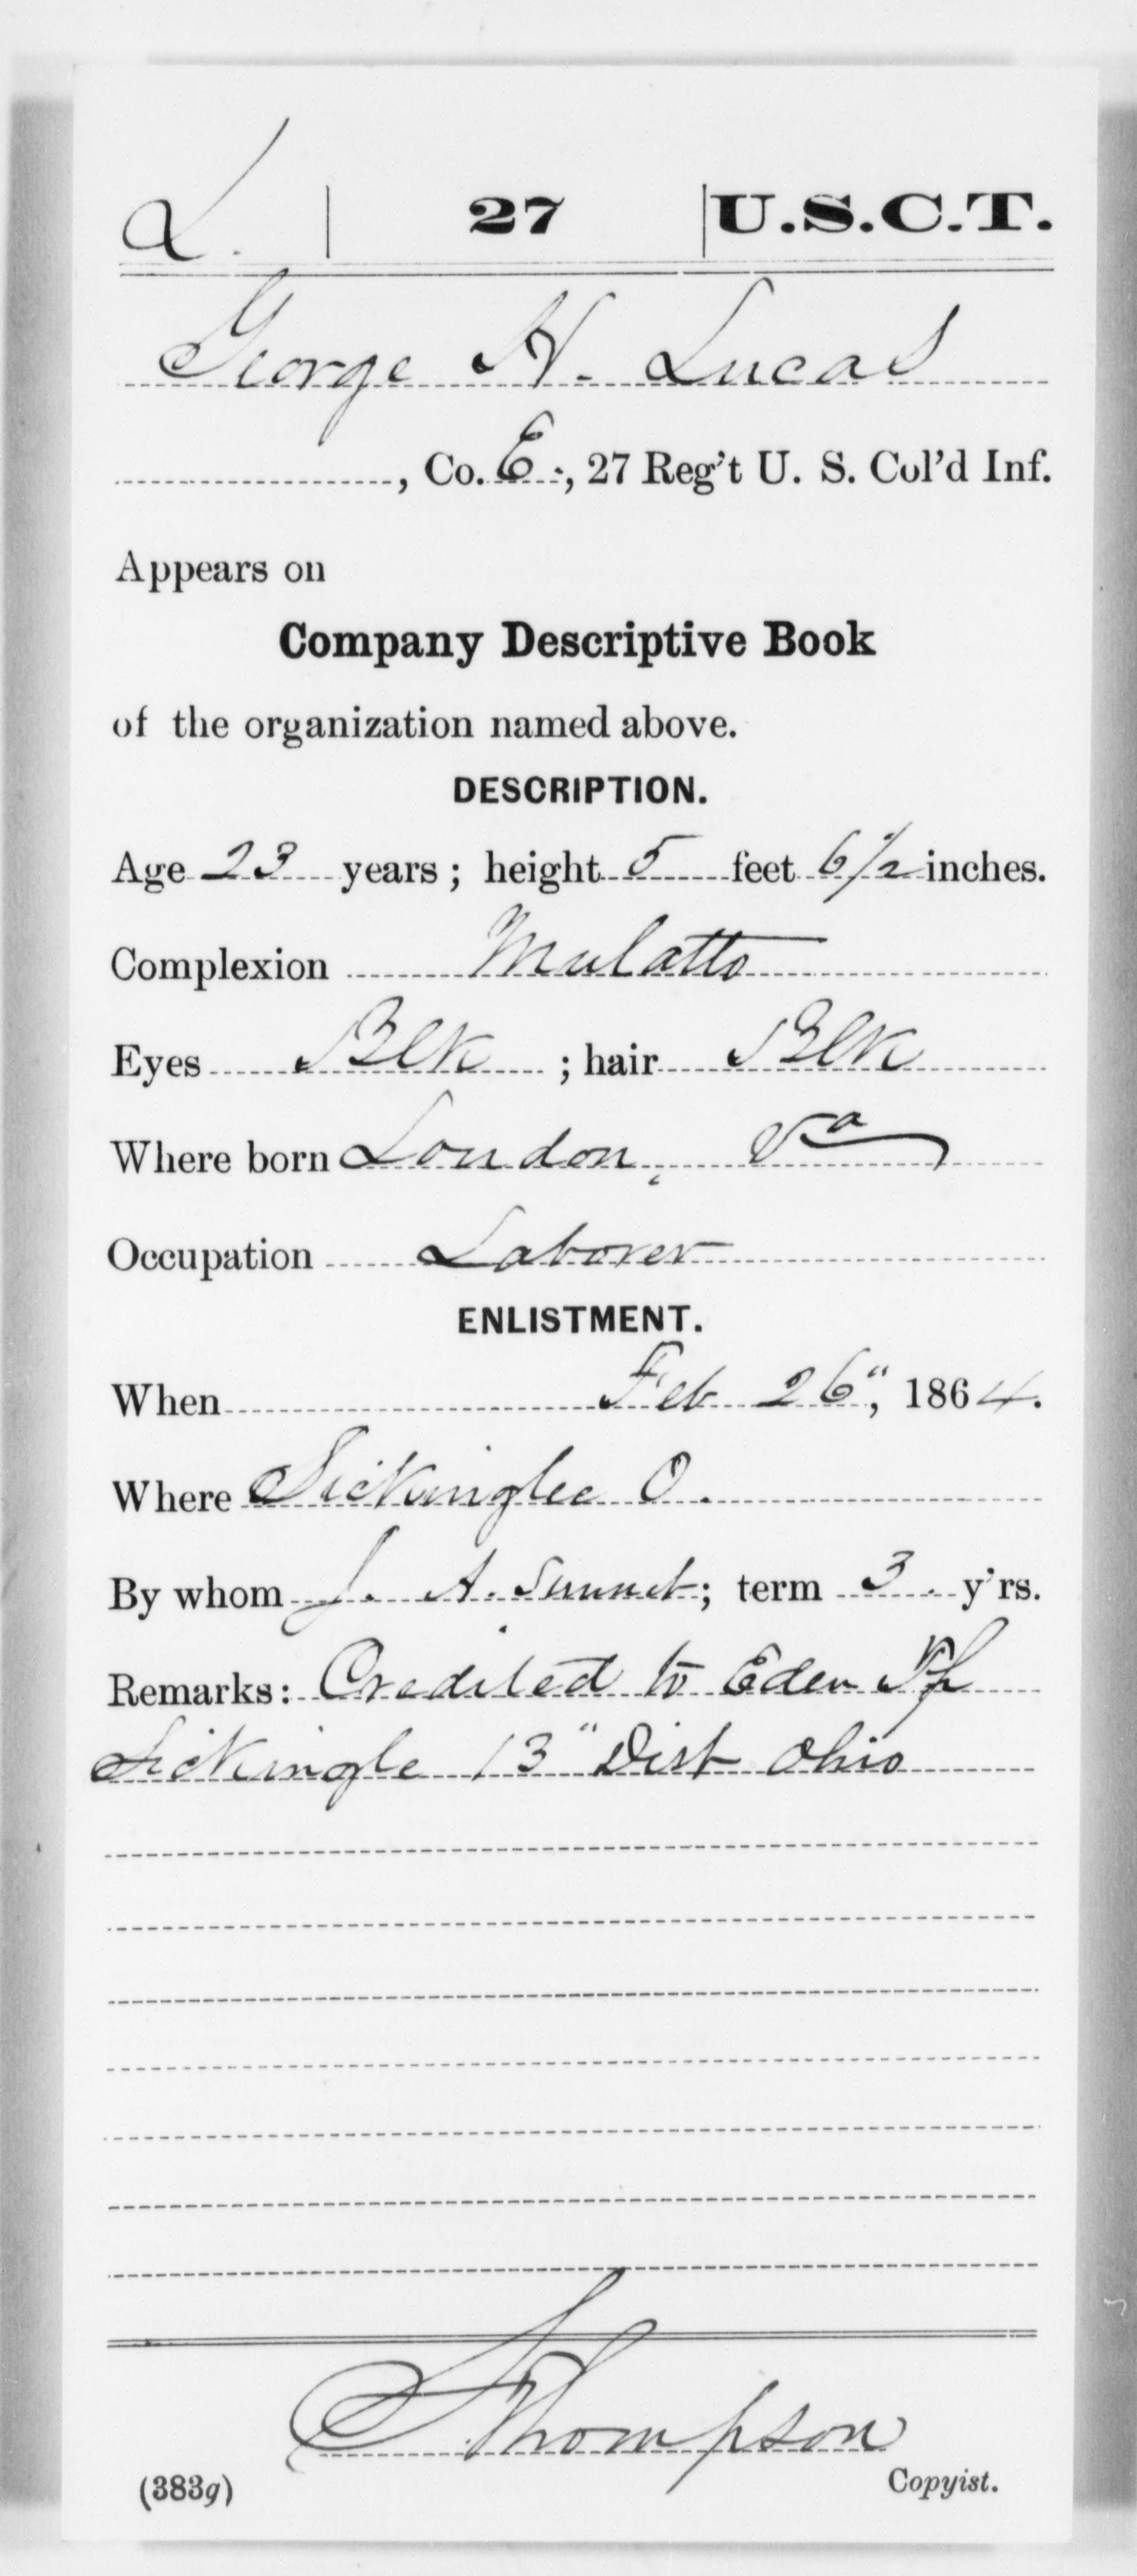 L. | 27 | U.S.C.T.
George H. Lucas
, Co. E., 27 Reg't U. S. Col'd Inf.
Appears on
Company Descriptive Book
of the organization named above.
DESCRIPTION.
Age 23 years; height 5 feet 6 1/2 inches.
Complexion Mulatto
Eyes Blk ; hair Blk
Where born London, Va
Occupation Laborer
ENLISTMENT.
When Feb 26", 1864.
Where Sickinglee O.
By whom J. A. ; term 3. y'rs.
Remarks: Credited to Eden Tp
Sickingle 13" Dist Ohio
Thompson
Copyist.
(383g)